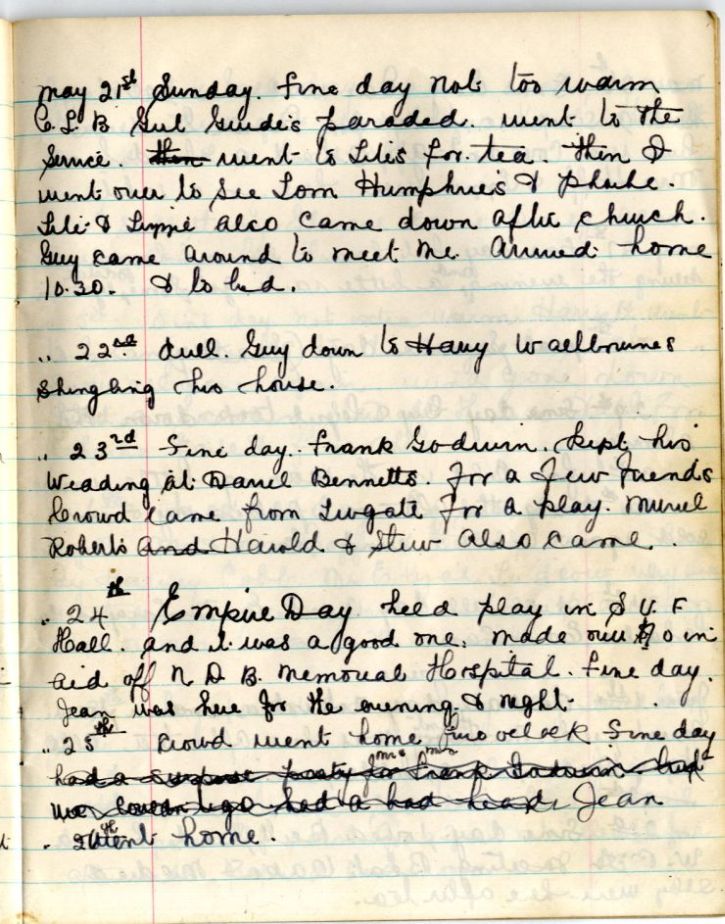 May 21st Sunday. Fine day not too warm
C.L.B Girl Guides paraded. went to the
Service. then went to Lili's for tea. Then I
went over to see Tom Humphries &
Lili & also came down after church.
Guy came around to meet me. Arrived home
10.30. & to bed.
" 22nd dull. Guy down to Harry
shingling his house.
" 23rd Fine day. Frank Godwin. kept his
Wedding at Daniel Bennetts. For a few friends
Crowd came from for a play. Muriel
Roberts and Harold & Stew also came.
" 24th Empire Day held play in S.U.F
Hall. and it was a good one. made over 70 in
aid off N.D.B. Memorial Hospital. Fine day.
Jean was here for the evening & night.
" 25th Crowd went home two oclock Fine day
had a surprise party for Mr & Mrs Frank Godwin. but
we had a bad head. Jean
" 26th went home.